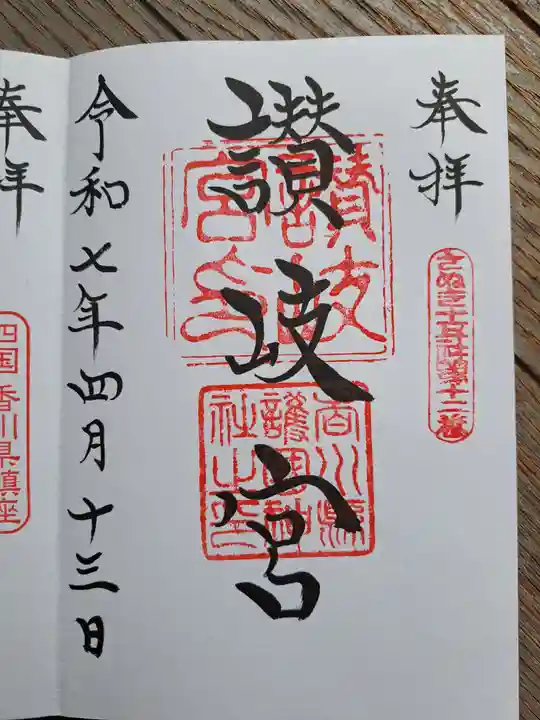 奉拝
さぬき十五社第十二番
讃岐宮
讃岐宮印
香川縣護國神社之印
令和七年四月十三日
奉拝
四国 香川県鎮座